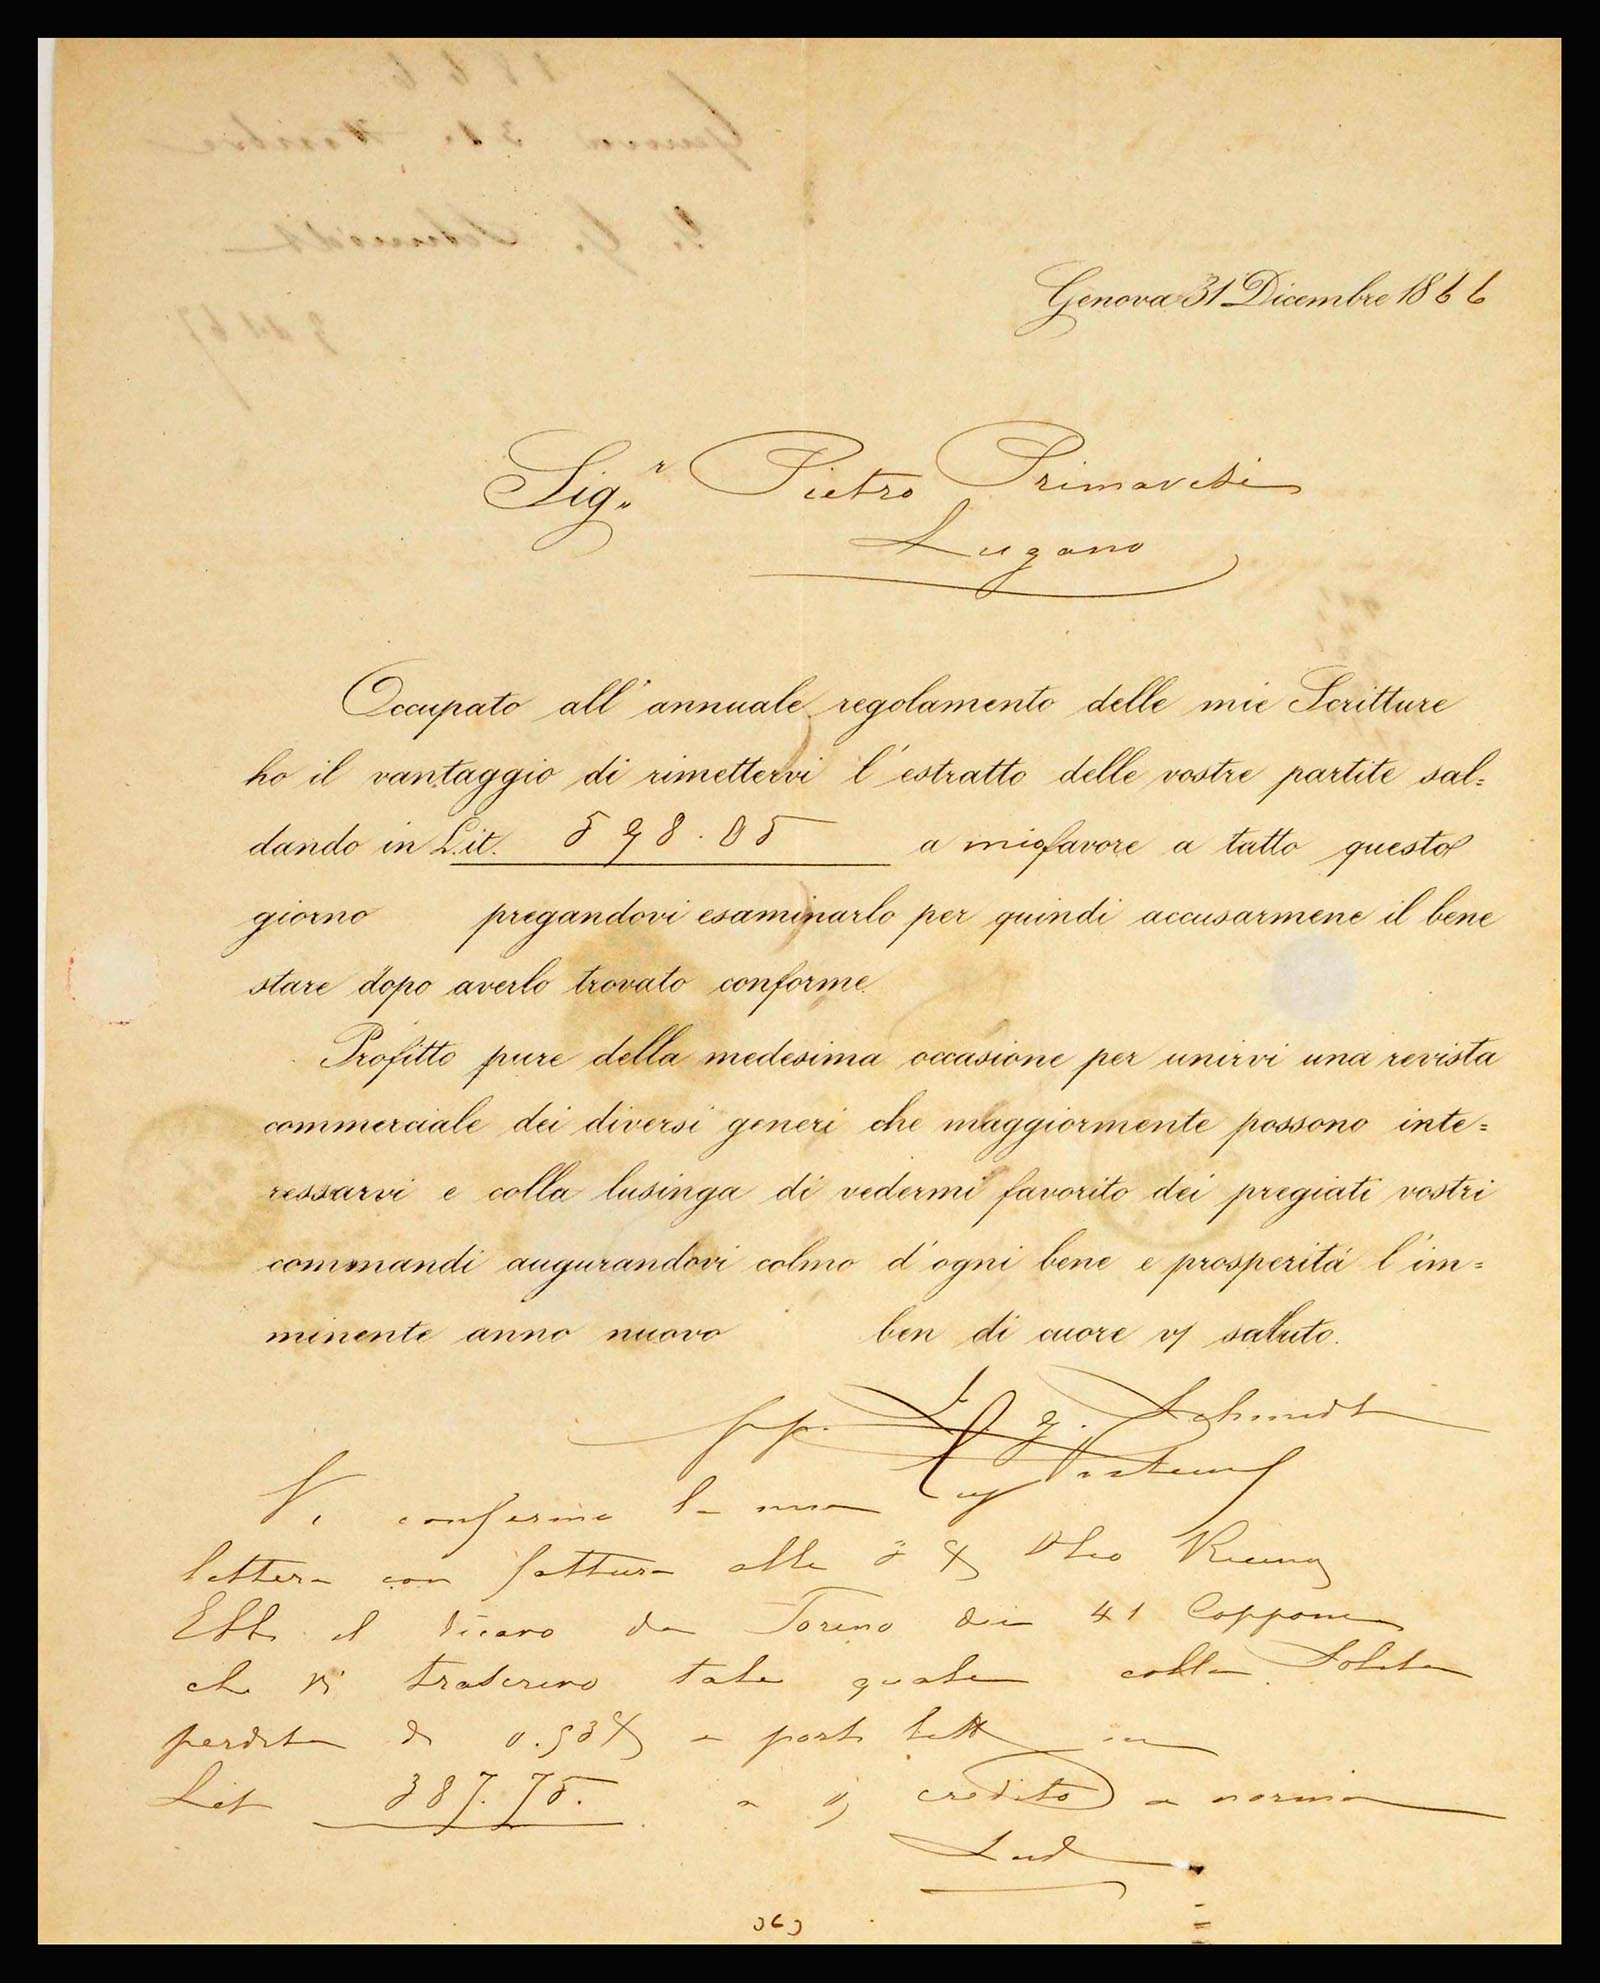 Genova 31 Dicembre 1866
Sig.r Pietro Primavesi
Lugano
Occupato all'annuale regolamento delle mie Scritture
ho il vantaggio di rimettervi l'estratto delle vostre partite sal=
dando in L.it. 598.05 a mio favore a tutto questo
giorno pregandovi esaminarlo per quindi accusarmene il bene
stare dopo averlo trovato conforme
Profitto pure della medesima occasione per unirvi una revista
commerciale dei diversi generi che maggiormente possono inte=
ressarvi e colla lusinga di vedermi favorito dei pregiati vostri
commandi augurandovi colmo d'ogni bene e prosperitá l'im=
minente anno nuovo ben di cuore vi saluto.
pp. G. Schmidt
Vi confermo la mia
lettera con fattura alli
il da Torino 41 Capponi
che vi trascrivo tale quale colla solita
perdita di a porto lett in
Lit 387.75. a credito a norma